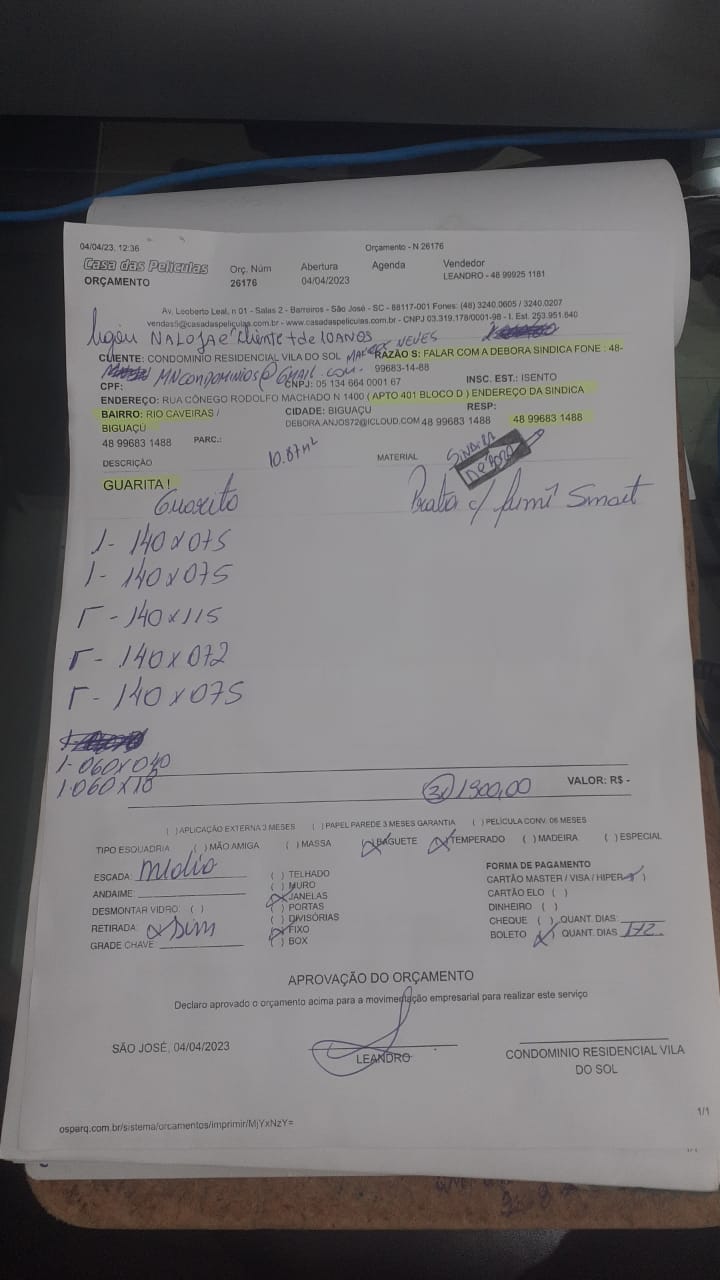 04/04/23, 12:36
Orçamento - N 26176
Casa das Películas
ORÇAMENTO
Orç. Núm
26176
Abertura
04/04/2023
Agenda
Vendedor
LEANDRO - 48 99925 1181
Av. Leoberto Leal, n 01 - Salas 2 - Barreiros - São José - SC - 88117-001 Fones: (48) 3240.0605 / 3240.0207
vendas5@casadaspeliculas.com.br - www.casadaspeliculas.com.br - CNPJ 03.319.178/0001-98 - I. Est. 253.951.640
ligou NA LOJA e cliente + de 10 ANOS
MARCOS NEVES
CLIENTE: CONDOMINIO RESIDENCIAL VILA DO SOL
RAZÃO S: FALAR COM A DEBORA SINDICA FONE : 48-
99683-14-88
MNCONDOMINIOS@GMAIL.COM.
CPF:
CNPJ: 05 134 664 0001 67
INSC. EST.: ISENTO
ENDEREÇO: RUA CÔNEGO RODOLFO MACHADO N 1400 ( APTO 401 BLOCO D ) ENDEREÇO DA SINDICA
BAIRRO: RIO CAVEIRAS /
BIGUAÇÚ
CIDADE: BIGUAÇU
RESP:
DEBORA.ANJOS72@ICLOUD.COM 48 99683 1488
48 99683 1488
48 99683 1488
PARC.:
DESCRIÇÃO
10.87m²
MATERIAL
SINDICA
DÉBORA
GUARITA !
Guarita
Prata c/ fumê Smart
1- 140 x 075
1- 140 x 075
1- 140 x 115
1- 140 x 072
1- 140 x 075
1- 060 x 040
1- 060 x 18
1300,00
VALOR: R$ -
( )APLICAÇÃO EXTERNA 3 MESES ( ) PAPEL PAREDE 3 MESES GARANTIA ( ) PELÍCULA CONV. 06 MESES
TIPO ESQUADRIA ( ) MÃO AMIGA ( ) MASSA (X) BAGUETE (X) TEMPERADO ( ) MADEIRA ( ) ESPECIAL
ESCADA: médio
ANDAIME:
DESMONTAR VIDRO: ( )
RETIRADA: x Sim
GRADE CHAVE:
( ) TELHADO
( ) MURO
(X) JANELAS
( ) PORTAS
( ) DIVISÓRIAS
(X) FIXO
( ) BOX
FORMA DE PAGAMENTO
CARTÃO MASTER / VISA / HIPER (X)
CARTÃO ELO ( )
DINHEIRO ( )
CHEQUE ( ) QUANT. DIAS:
BOLETO (X) QUANT. DIAS 1+2.
APROVAÇÃO DO ORÇAMENTO
Declaro aprovado o orçamento acima para a movimentação empresarial para realizar este serviço
SÃO JOSÉ, 04/04/2023
LEANDRO
CONDOMINIO RESIDENCIAL VILA
DO SOL
osparq.com.br/sistema/orcamentos/imprimir/MjYxNzY=
1/1
1/1